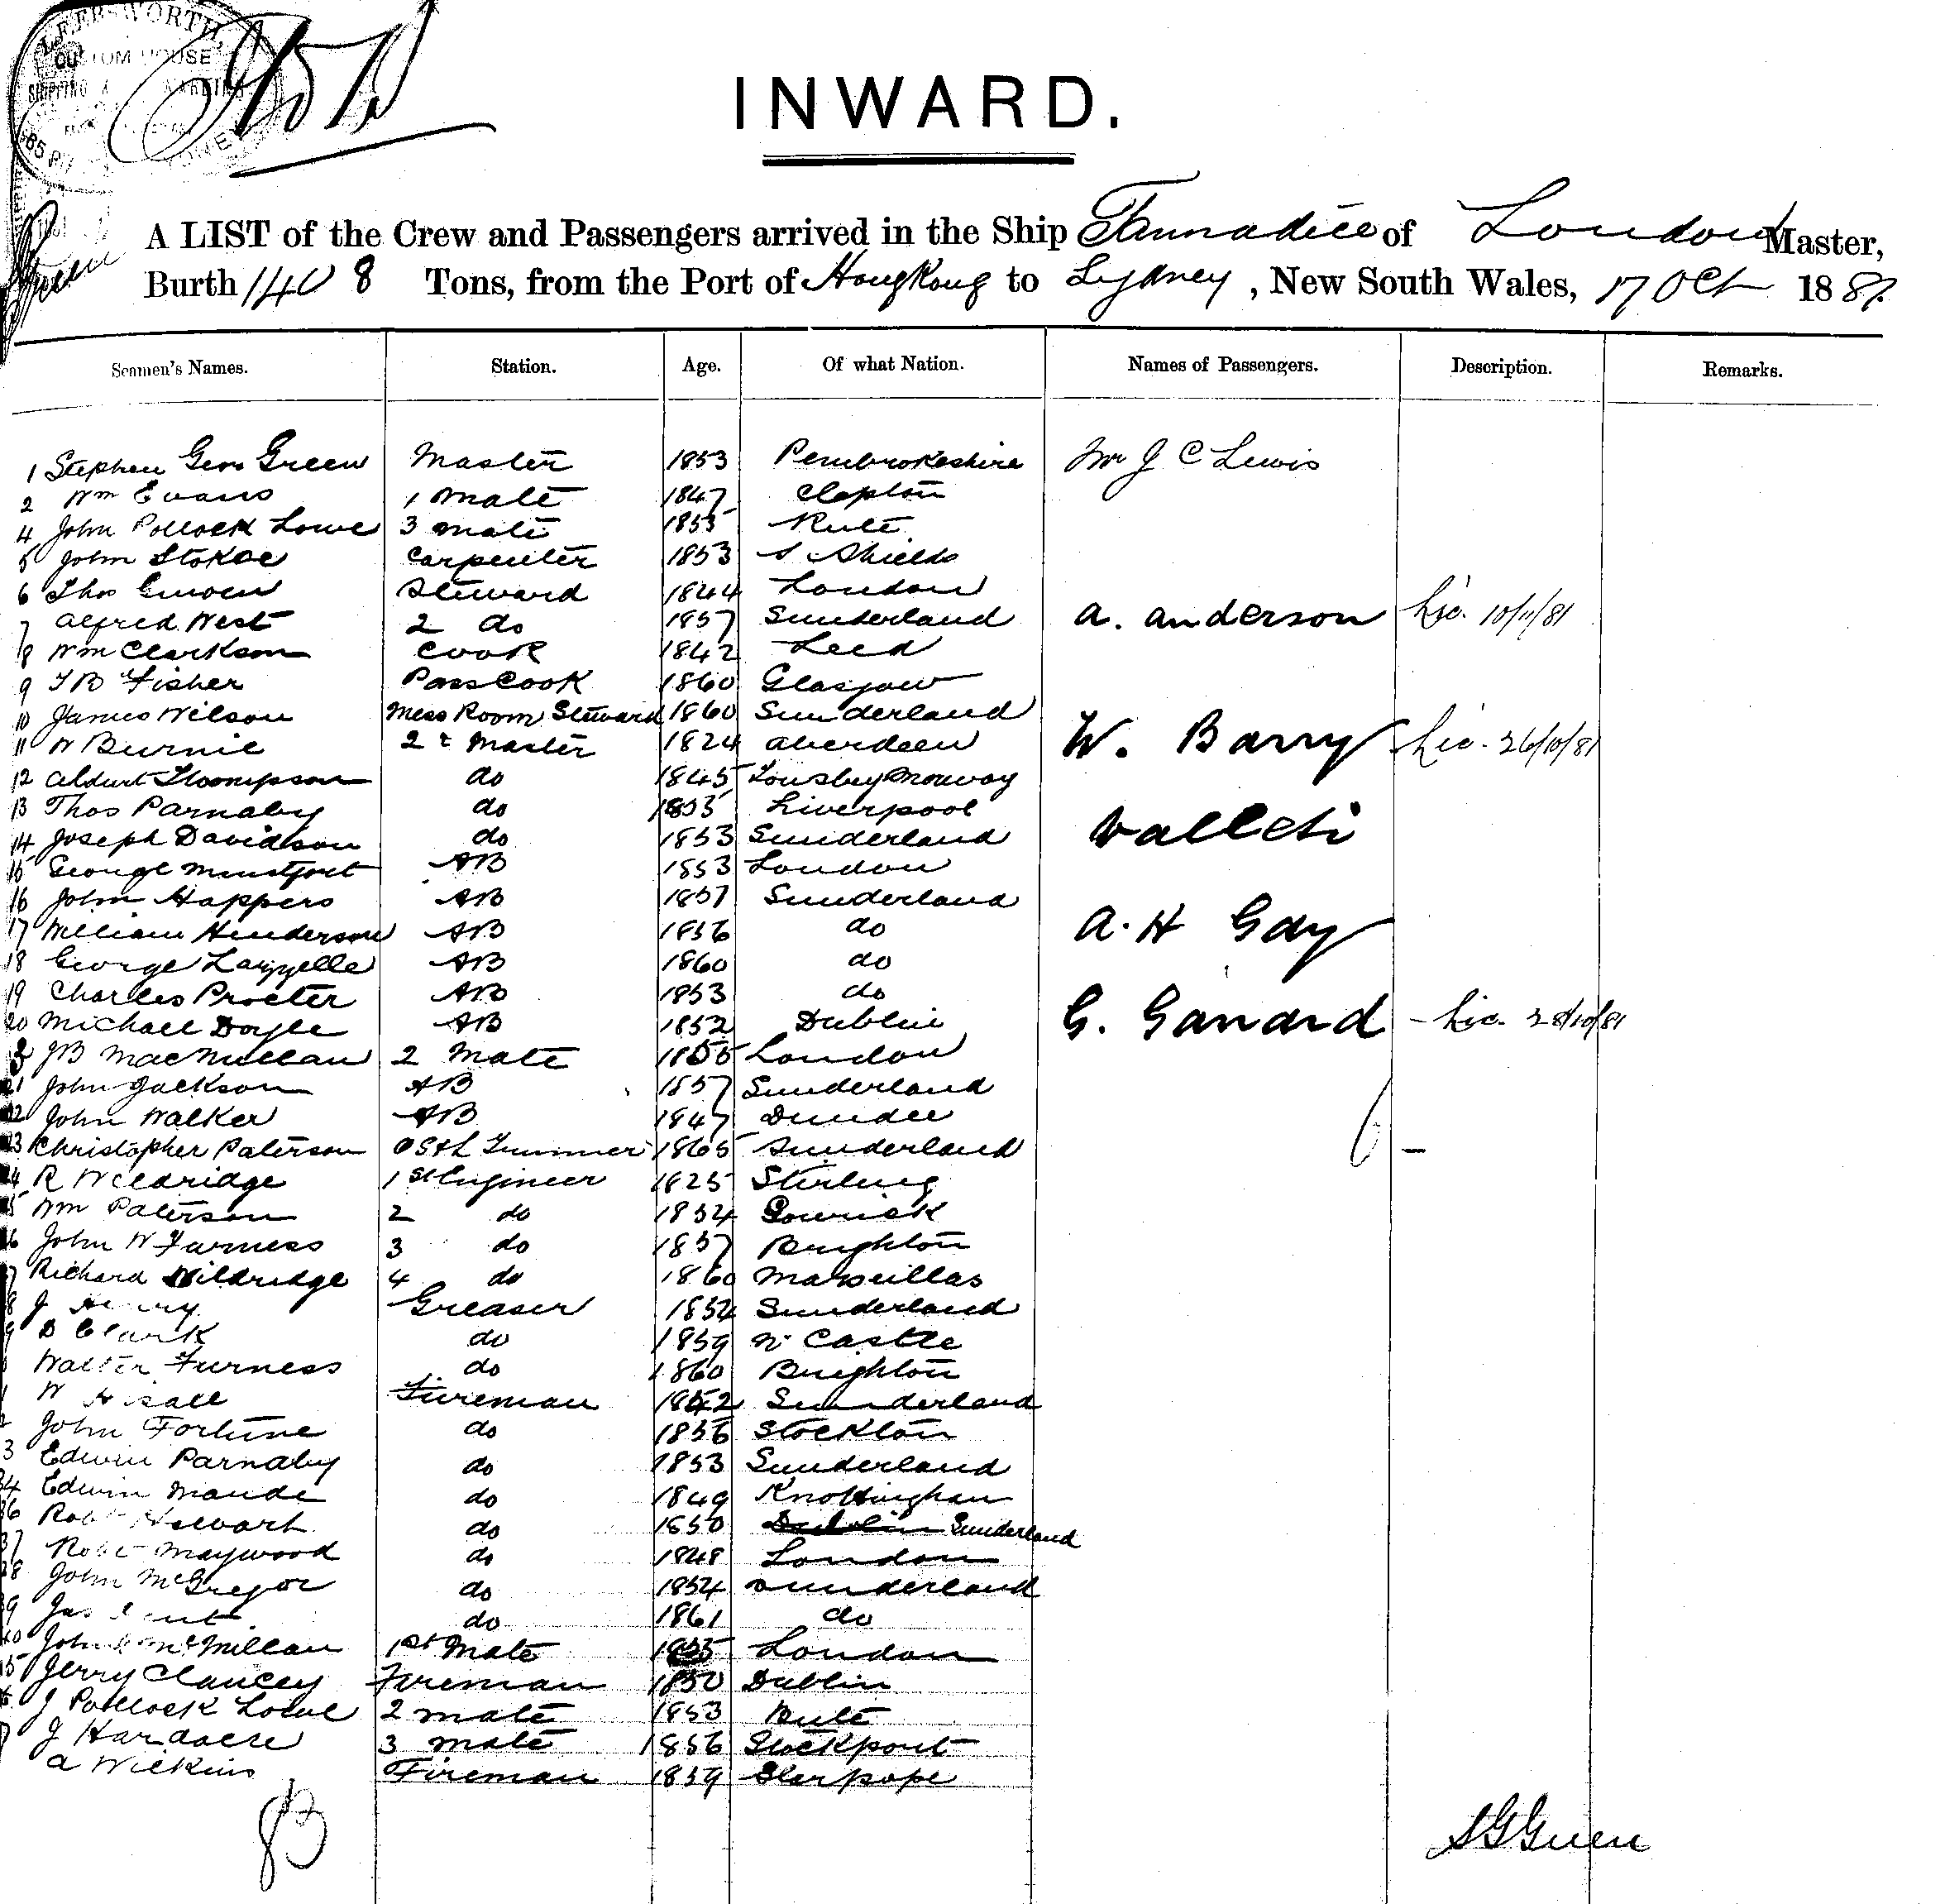 CUSTOM HOUSE
INWARD.
A LIST of the Crew and Passengers arrived in the Ship Tannadice of London Master,
Burth 1408 Tons, from the Port of HongKong to Sydney, New South Wales, 17 Oct 1881.
Seamen's Names. Station. Age. Of what Nation. Names of Passengers. Description. Remarks.
1 Stephen Geo Green Master 1853 Pembrokeshire Mr J C Lewis
2 Wm Evans 1 Mate 1847 Clapton
4 John Pollock Lowe 3 mate 1853 Bute
5 John Stokoe Carpenter 1853 S Shields
6 Thos Steward 1844 London
7 Alfred West 2 do 1857 Sunderland A. Anderson Lic. 10/11/81
8 Wm Clarkson Cook 1842 Leed
9 J B Fisher Pass Cook 1860 Glasgow
10 James Wilson Mess Room Steward 1860 Sunderland
11 W Burnie 2r Master 1824 Aberdeen W. Barry Lic. 26/10/81
12 Thoompson do 1845 Norway
13 Thos Parnaby do 1853 Liverpool Valleti
14 Joseph Davidson do 1853 Sunderland
15 George AB 1853 London
16 John Happers AB 1857 Sunderland A. H Gay
17 William Henderson AB 1856 do
18 George Lazzelle AB 1860 do
19 Charles Procter AB 1853 do
20 Michael Doyle AB 1852 Dublin G. Ganard - Lic. 28/10/81
3 JB MacMillan 2 Mate 1855 London
21 John Jackson AB 1857 Sunderland
22 John Walker AB 1847 Dundee
23 Christopher Paterson OS & L Trimmer 1865 Sunderland 6 -
24 R Wildridge 1st Engineer 1825 Stirling
25 Wm Paterson 2 do 1854 Gourick
26 John W Furness 3 do 1857 Brighton
7 Richard Wildridge 4 do 1860 Marsillas
8 J Henry Greaser 1854 Sunderland
9 D Clark do 1859 N Castle
Walter Furness do 1860 Brighton
W Fireman 1852 Sunderland
2 John Fortune do 1856 Stockton
3 Edwin Parnaby do 1853 Sunderland
34 Edwin Maude do 1849 Knottingham
36 Robt Howart do 1850 Dublin Sunderland
37 Robt Maywood do 1848 London
38 John McGregor do 1854 Sunderland
39 Jas do 1861 do
40 John McMillan 1st Mate 1855 London
Jerry Clancey Fireman 1850 Dublin
J Pollock Lowe 2 mate 1853 Bute
J Hardacre 3 mate 1856 Stockport
A Wilkins Fireman 1859
SGGreen